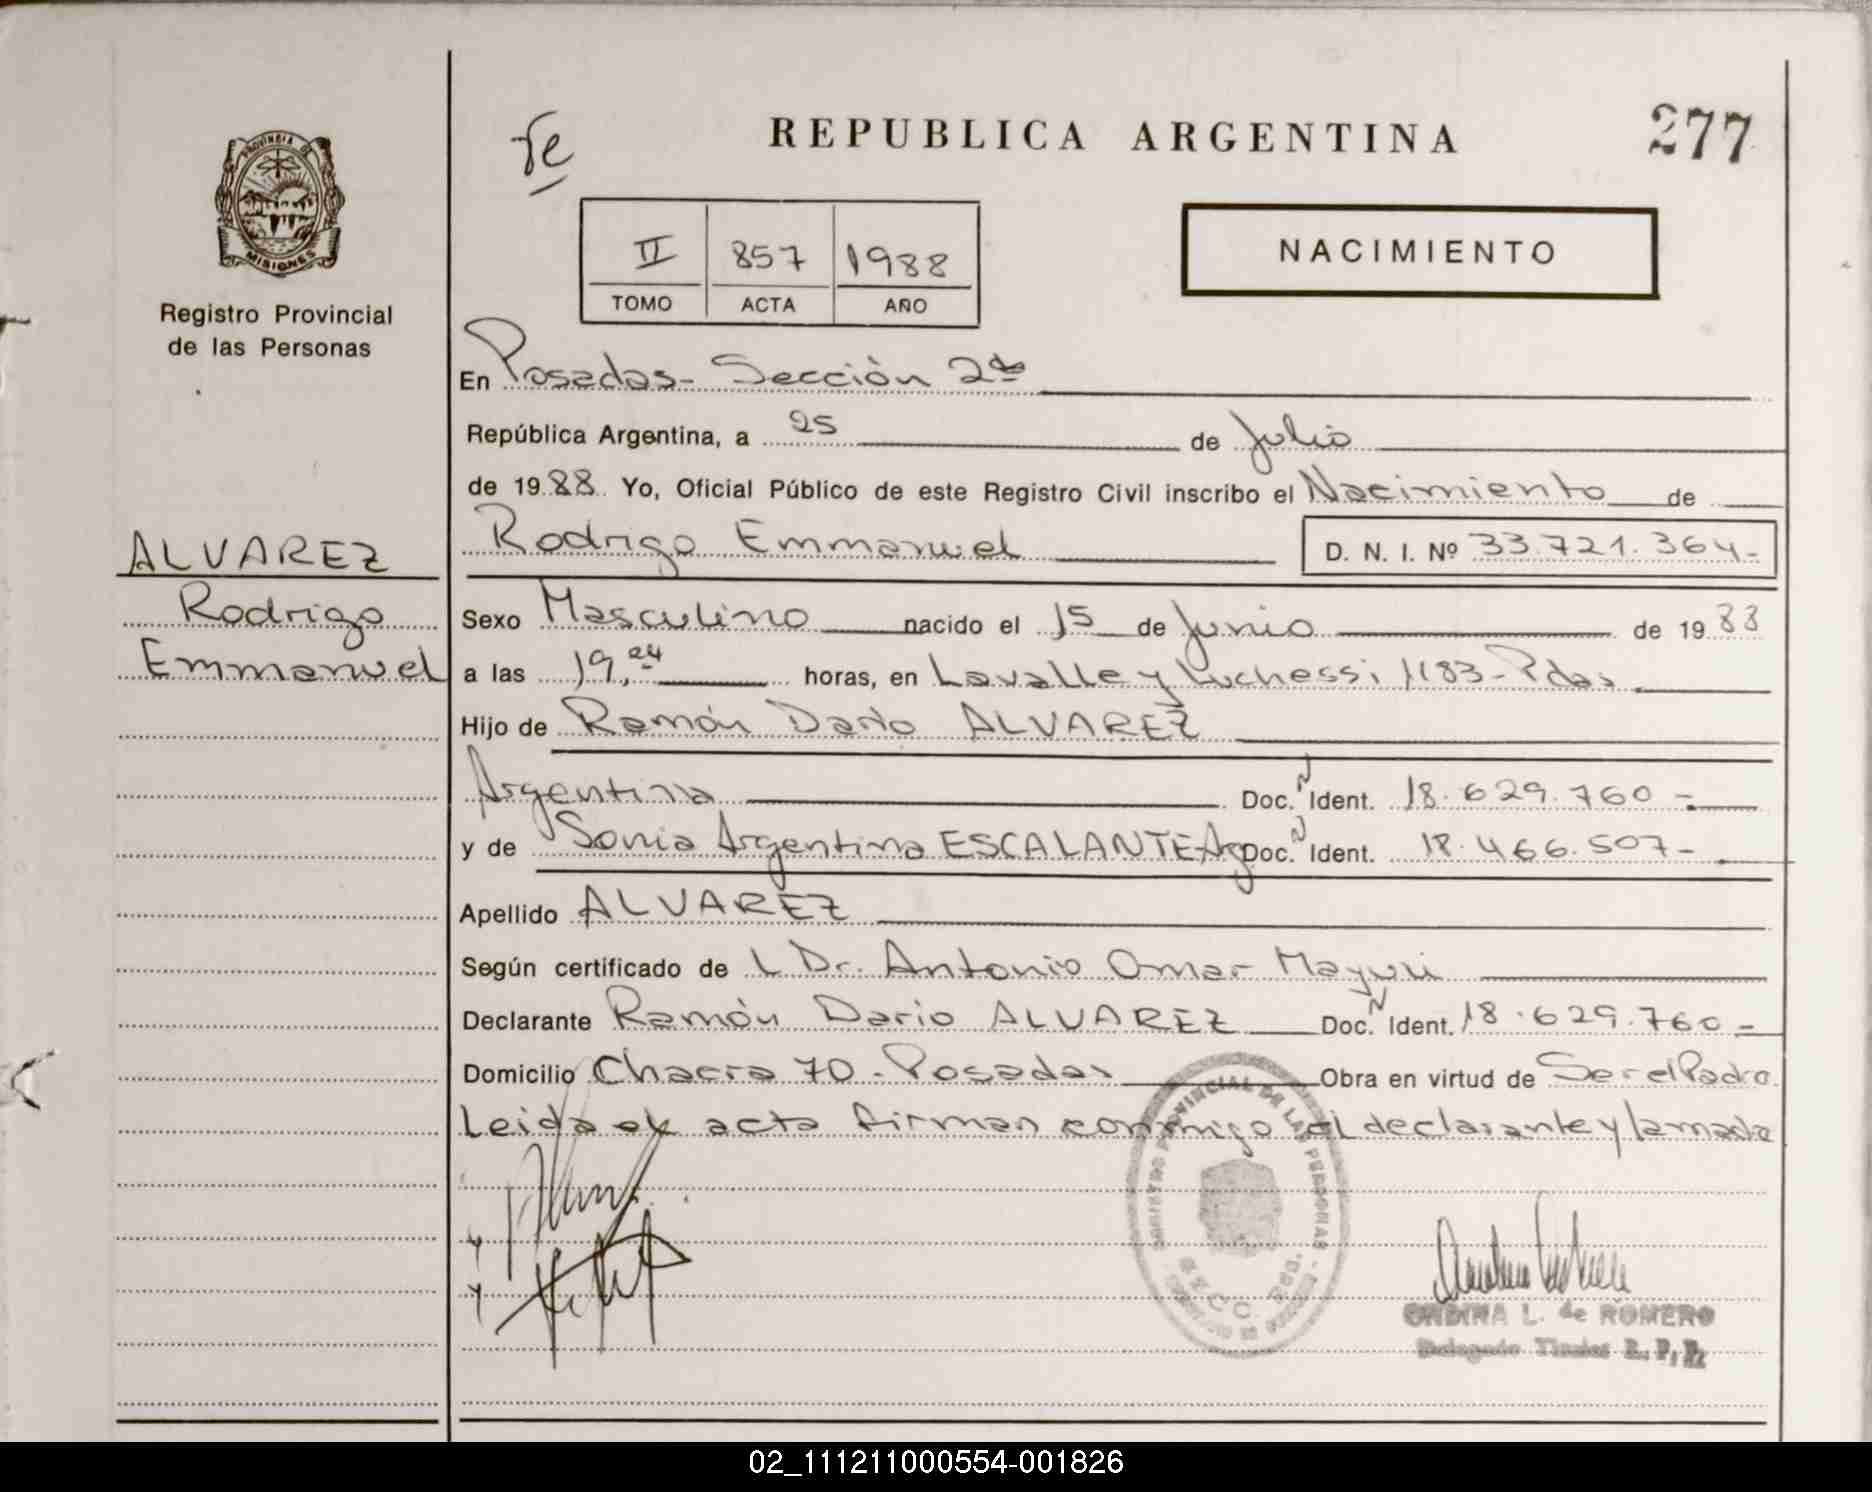 PROVINCIA DE
MISIONES
Registro Provincial
de las Personas
ALVAREZ
Rodrigo
Emmanuel
REPUBLICA ARGENTINA
277
II 857 1988
TOMO ACTA AÑO
NACIMIENTO
En Posadas- Sección 2da
República Argentina, a 25 de Julio
de 1988 Yo, Oficial Público de este Registro Civil inscribo el Nacimiento de
Rodrigo Emmanuel D. N. I. Nº 33.721.364-
Sexo Masculino nacido el 15 de Junio de 1988
a las 19,24 horas, en Lavalle y Luchessi 1183-Pdas
Hijo de Ramón Darío ALVAREZ
Argentina Doc. N Ident. 18.629.760-
y de Sonia Argentina ESCALANTE-Arg Doc. N Ident. 18.466.507-
Apellido ALVAREZ
Según certificado de L Dr. Antonio Omar
Declarante Ramón Dario ALVAREZ Doc. N Ident. 18.629.760-
Domicilio Chacra 70-Posadas Obra en virtud de Ser el Padre
Leida el acta firman conmigo el declarante y la madre
y
y
REGISTRO PROVINCIAL DE LAS PERSONAS
SECC. 2DA.
ONDINA L. de ROMERO
Delegado Titular R. P. P.
02_111211000554-001826